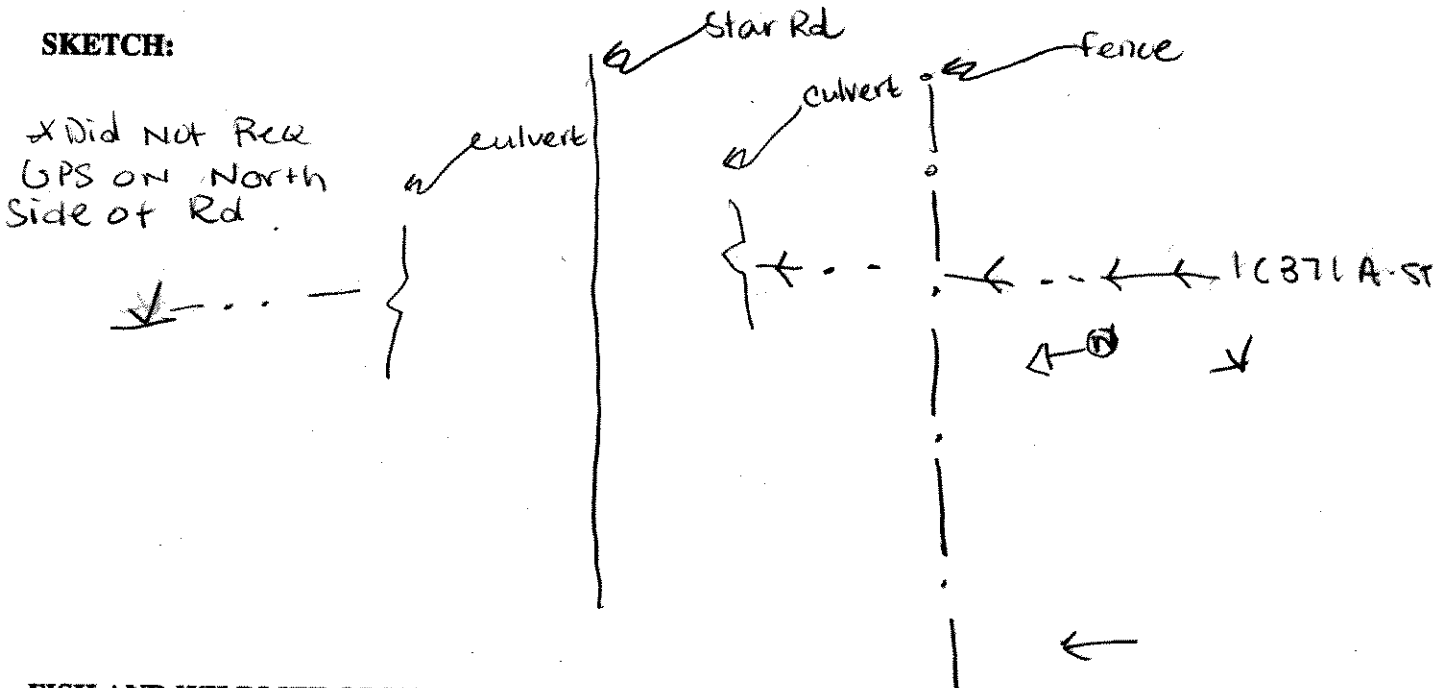 SKETCH:
Star Rd
fence
culvert
culvert
*Did Not Rec
GPS ON North
Side of Rd.
1C371A-ST
N